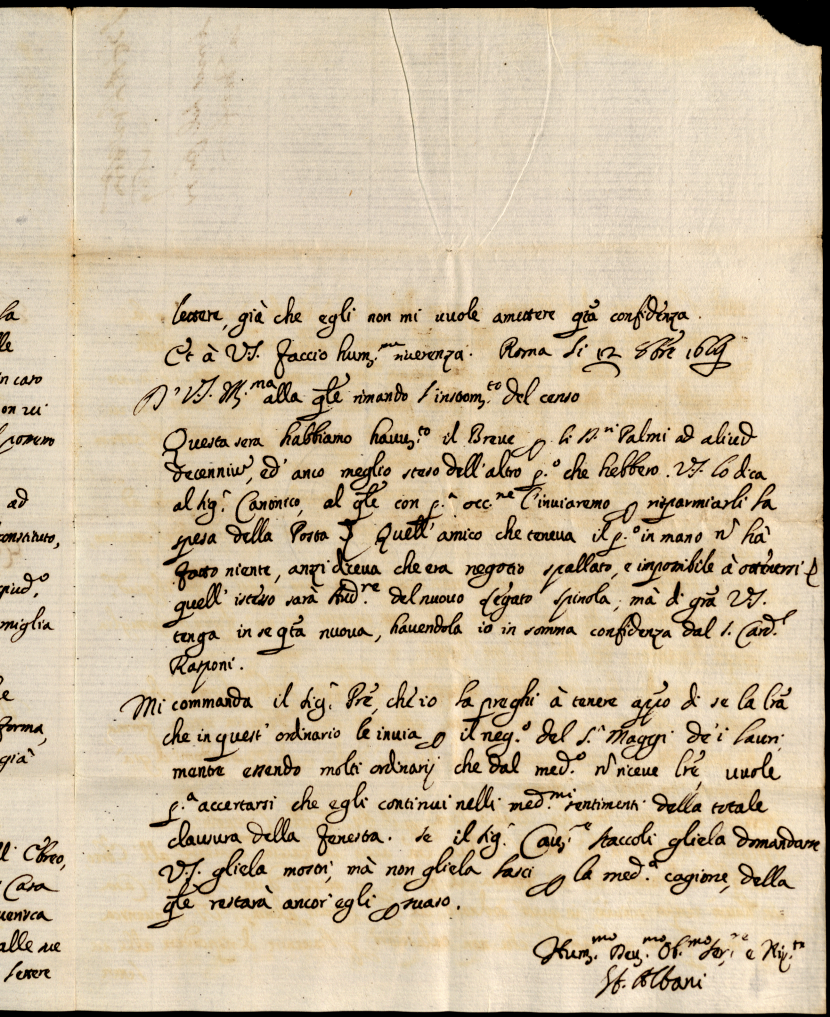 la
lle
in caso
on vi
ad
constituto,
miglia
forma,
già
ll' Ebreo,
Casa
alle ue
lettere
lettere, già che egli non mi vuole amettere q͞ta confidenza.
Et à V.S. faccio hum.ma riverenza. Roma li 12 8bre 1669
D' V.S. M.ma alla q͞le rimando l'instrom.to del censo
Questa sera habbiamo havu.to il Breve p li B.ni Palmi ad aliud
decenniu͞, ed' anco meglio steso dell'altro p.o che hebbero. V.S. lo dica
al sig.r Canonico, al q͞le con p.a occ.ne l'inviaremo p risparmiarli la
spesa della Posta. Quell' amico che teneva il p.o in mano n͞ hà
fatto niente, anzi diceva che era negotio spallato, e impossibile à ottenersi. E
quell' istesso sarà Aud.re del nuovo Legato Spinola, mà di gr͞a V.S.
tenga in se q͞ta nuova, havendola io in somma confidenza dal S. Card.l
Rasponi.
Mi commanda il Sig.r P͞re, ch'io la preghi à tenere ap͞so di se la l͞ra
che in quest' ordinario le invia p il neg.o del S.r Maggi de'i Lauri;
mentre essendo molti ordinarij che dal med.o n͞ riceve l͞re, vuole
p.a accertarsi che egli continui nelli med.mi sentimenti della totale
clausura della fenestra. Se il Sig.r Cav.re Staccoli gliela domandasse
V.S. gliela mostri, mà non gliela lasci p la med.a cagione, della
q͞le restarà ancor' egli p͞suaso.
Hum.mo Dev.mo Ob.mo Ser.re e Nip.te
Albani